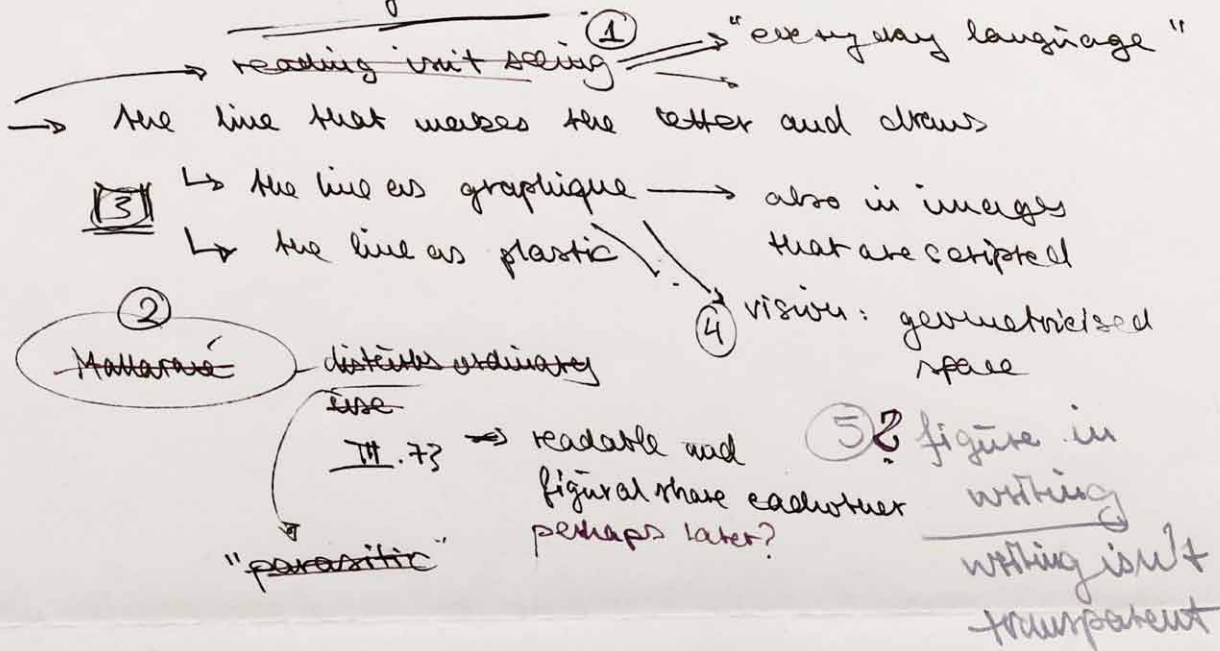 ①
reading isn't seeing ⇒ "everyday language"
→ the line that makes the letter and draws
3 ↳ the line as graphique → also in images
that are scripted
↳ the line as plastic
④ vision: geometricised
space
②
Mallarmé disturbs ordinary
use
III.73 → readable and
figural share eachother
perhaps later?
"parasitic"
5? figure in
writing
writing isn't
transparent